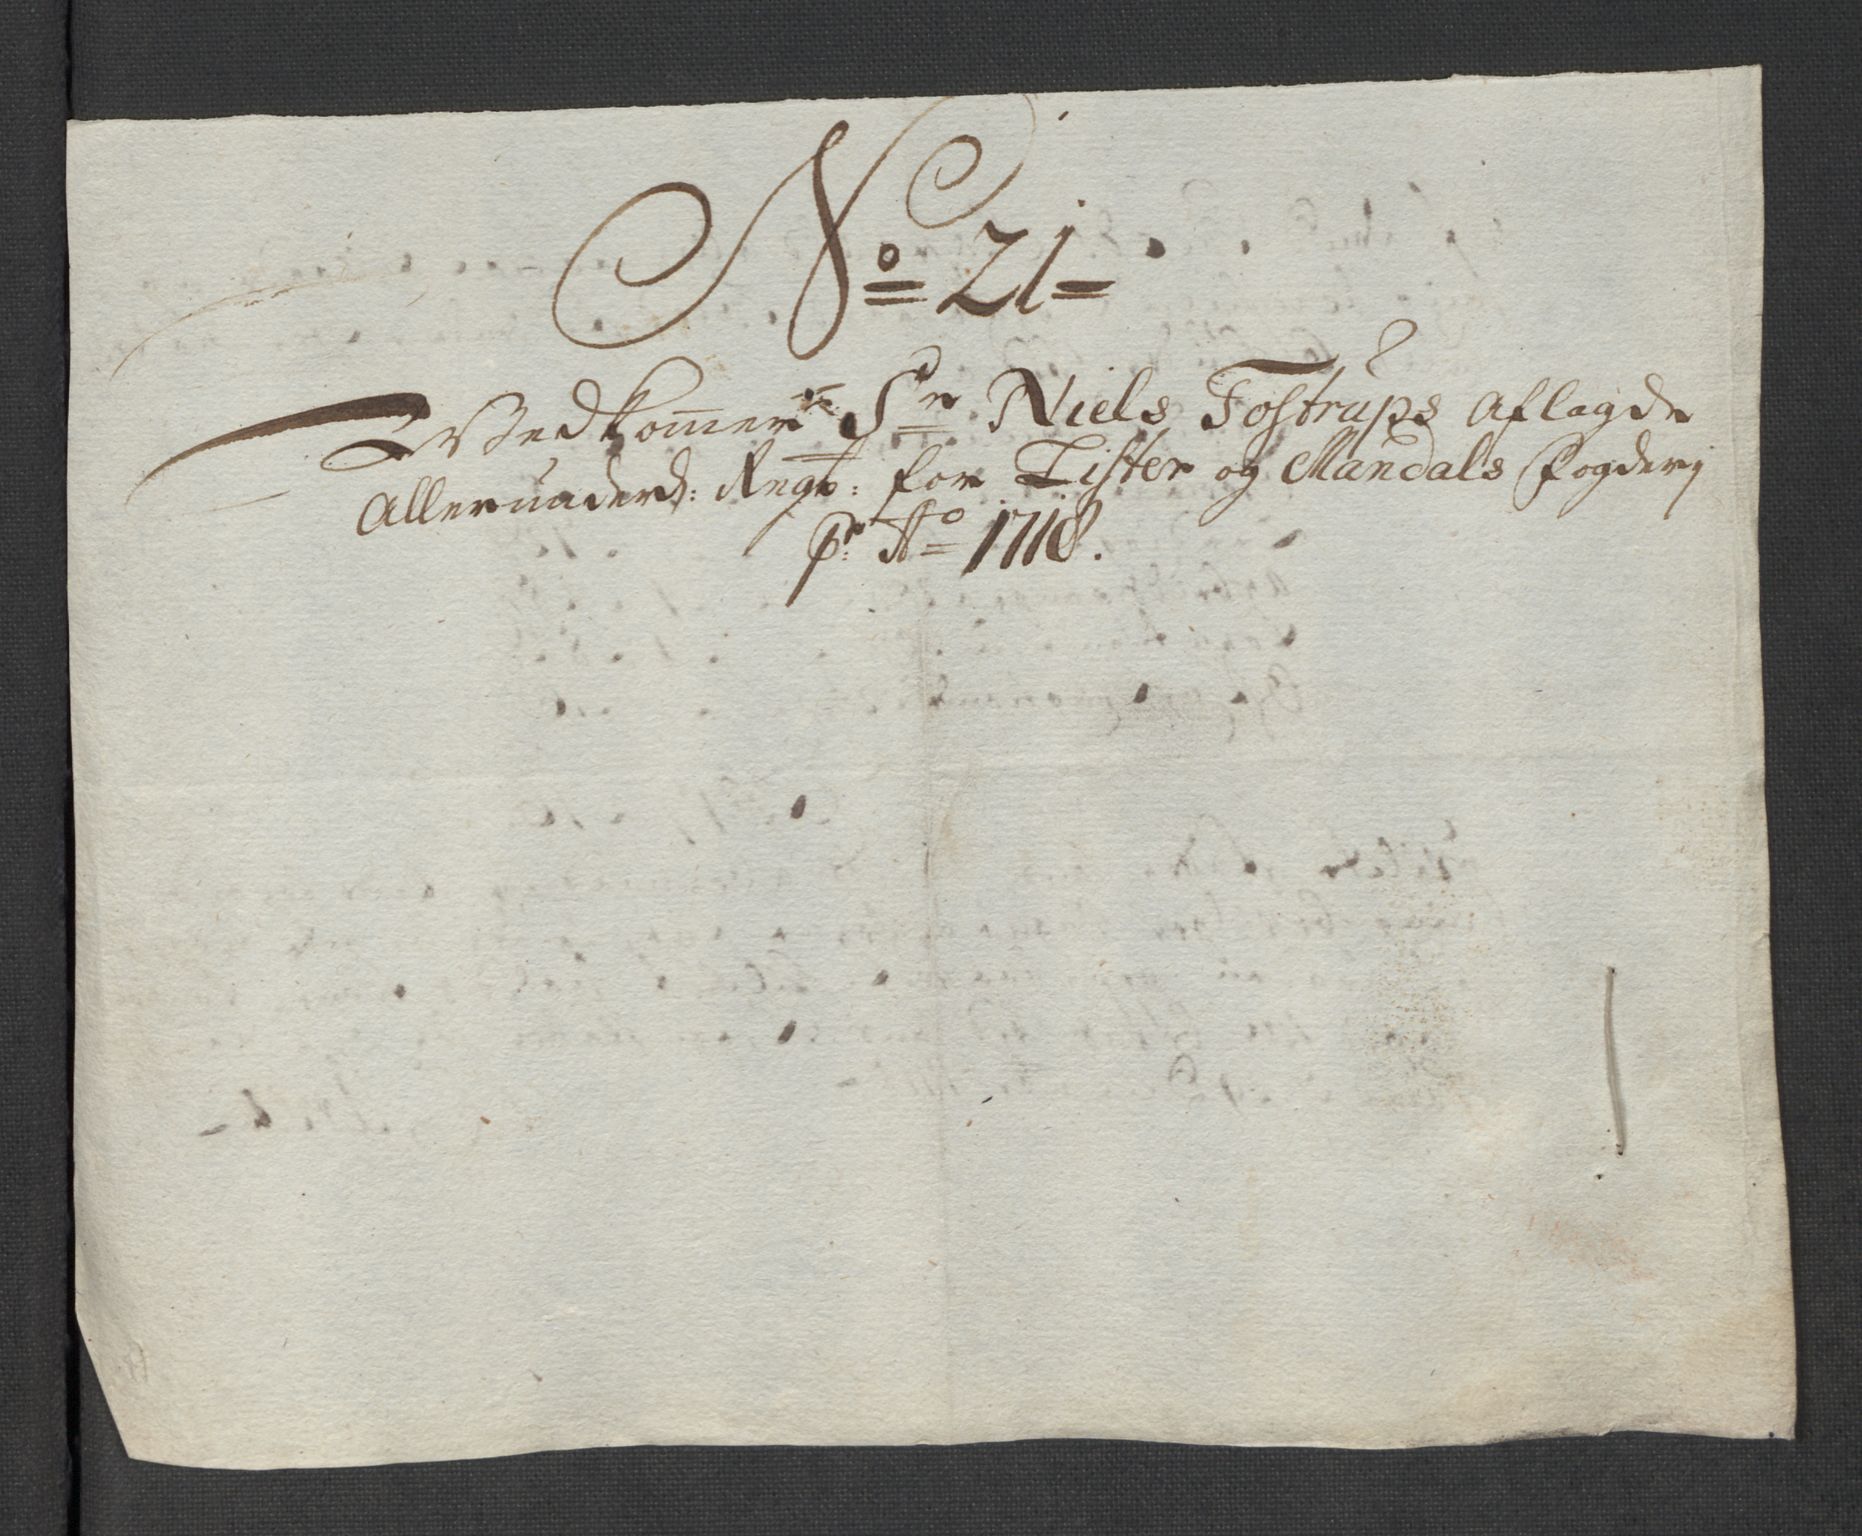 No 21
Vedkommer Sr Niels Tostrups aflagde
Allerunderd: Regb: for Lister og Mandals Fogderj
pr Ao 1718.